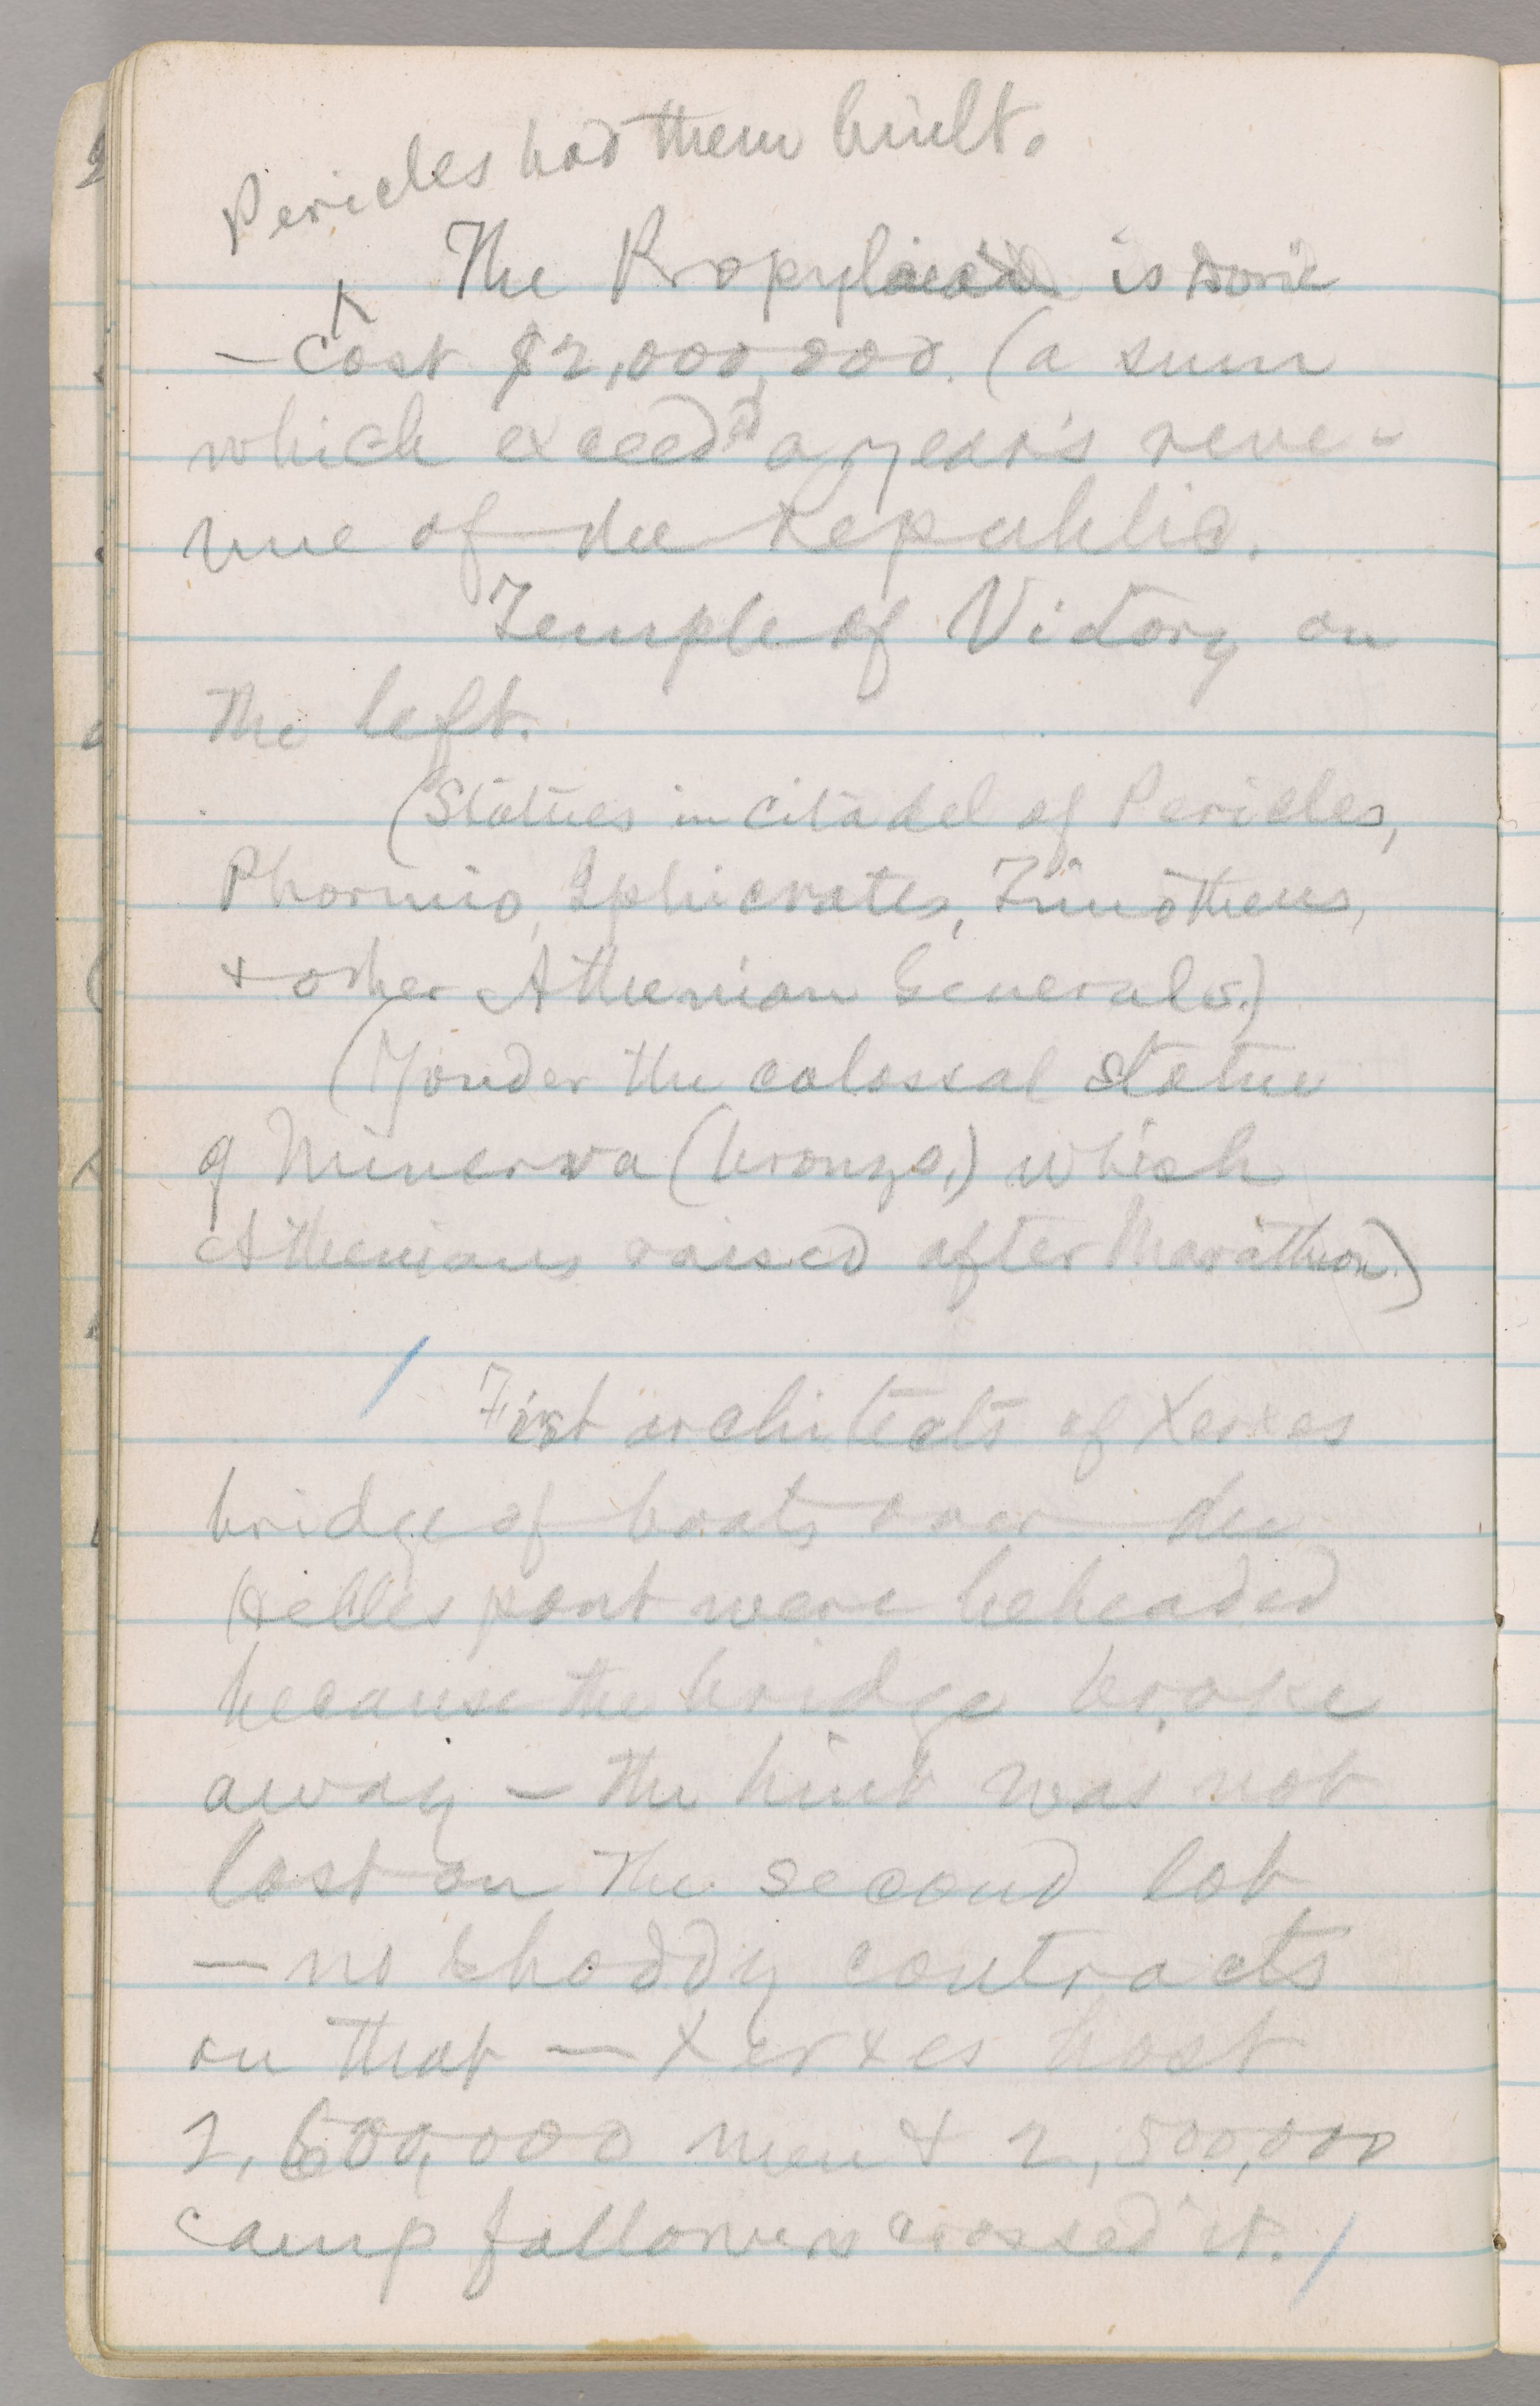 Pericles had them built.
The Propylaea is Doric
— Cost $2,000,000. (a sum
which exceeded a year's reve-
nue of the Republic.
Temple of Victory on
the left.
(Statues in citadel of Pericles,
Phormio, Iphicrates, Timotheus,
& other Athenian Generals.)
(Yonder the colossal statue
of Minerva (bronze,) which
Athenians raised after Marathon.)
First architects of Xerxes
bridge of boats over the
Hellespont were beheaded
because the bridge broke
away — the hint was not
lost on the second lot
— no shoddy contracts
on that — Xerxes host
2,600,000 men & 2,500,000
camp followers crossed it.